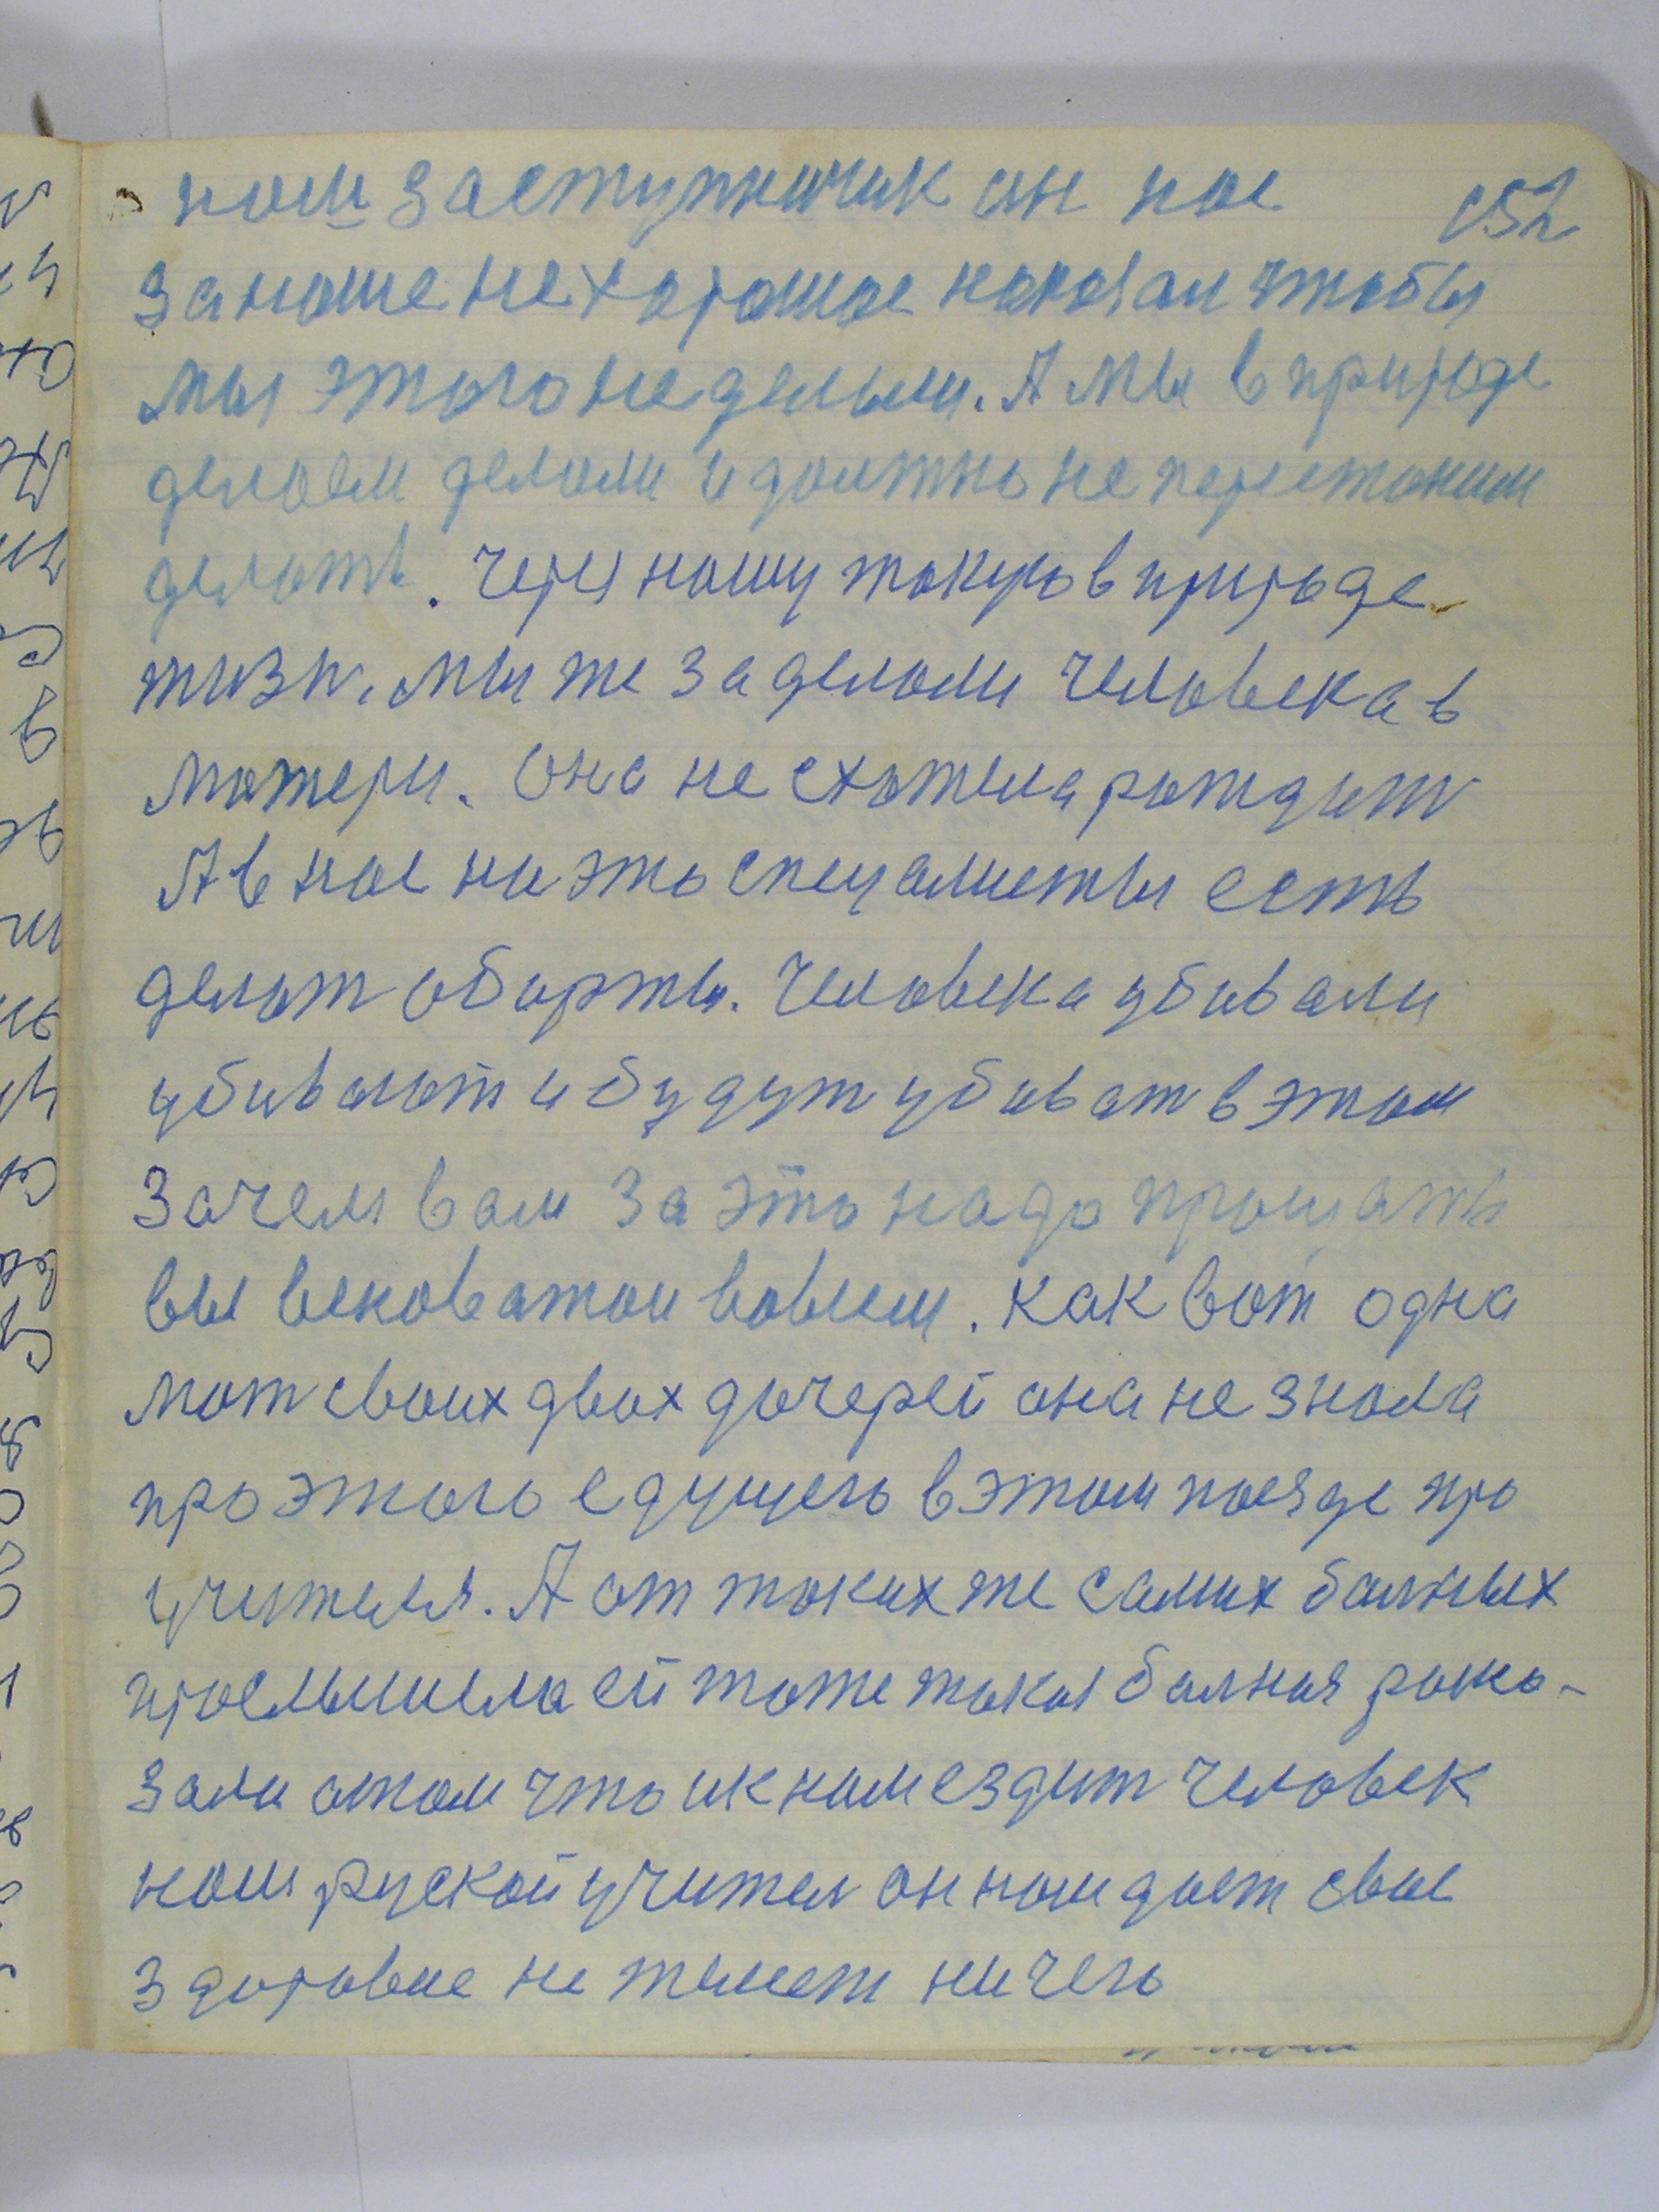 152
наш заступничик ин нас
за наше не хорошое наказал чтобы
мы этого не делали. А мы в природе
делаем делали и должно не перестаним
делать. Через нашу такую в природе
жизн. мы же заделали человека в
матери. Она не схотела рождат
А в нас на это специалисты есть
делат оборты. Человека убивали
убивают и будут убиват в этом
Зачем вам за это надо прощать
вы векове атом вовсем. Как вот одна
мат своих двох дочерей она не знала
про этого едущего в этом поезде про
учителя. А от таких же самих болных
прослышела ей тоже такая болная роска-
зали атом что ик нам ездит человек
наш руской учител он нам дает свое
здоровие не жалеет ничего